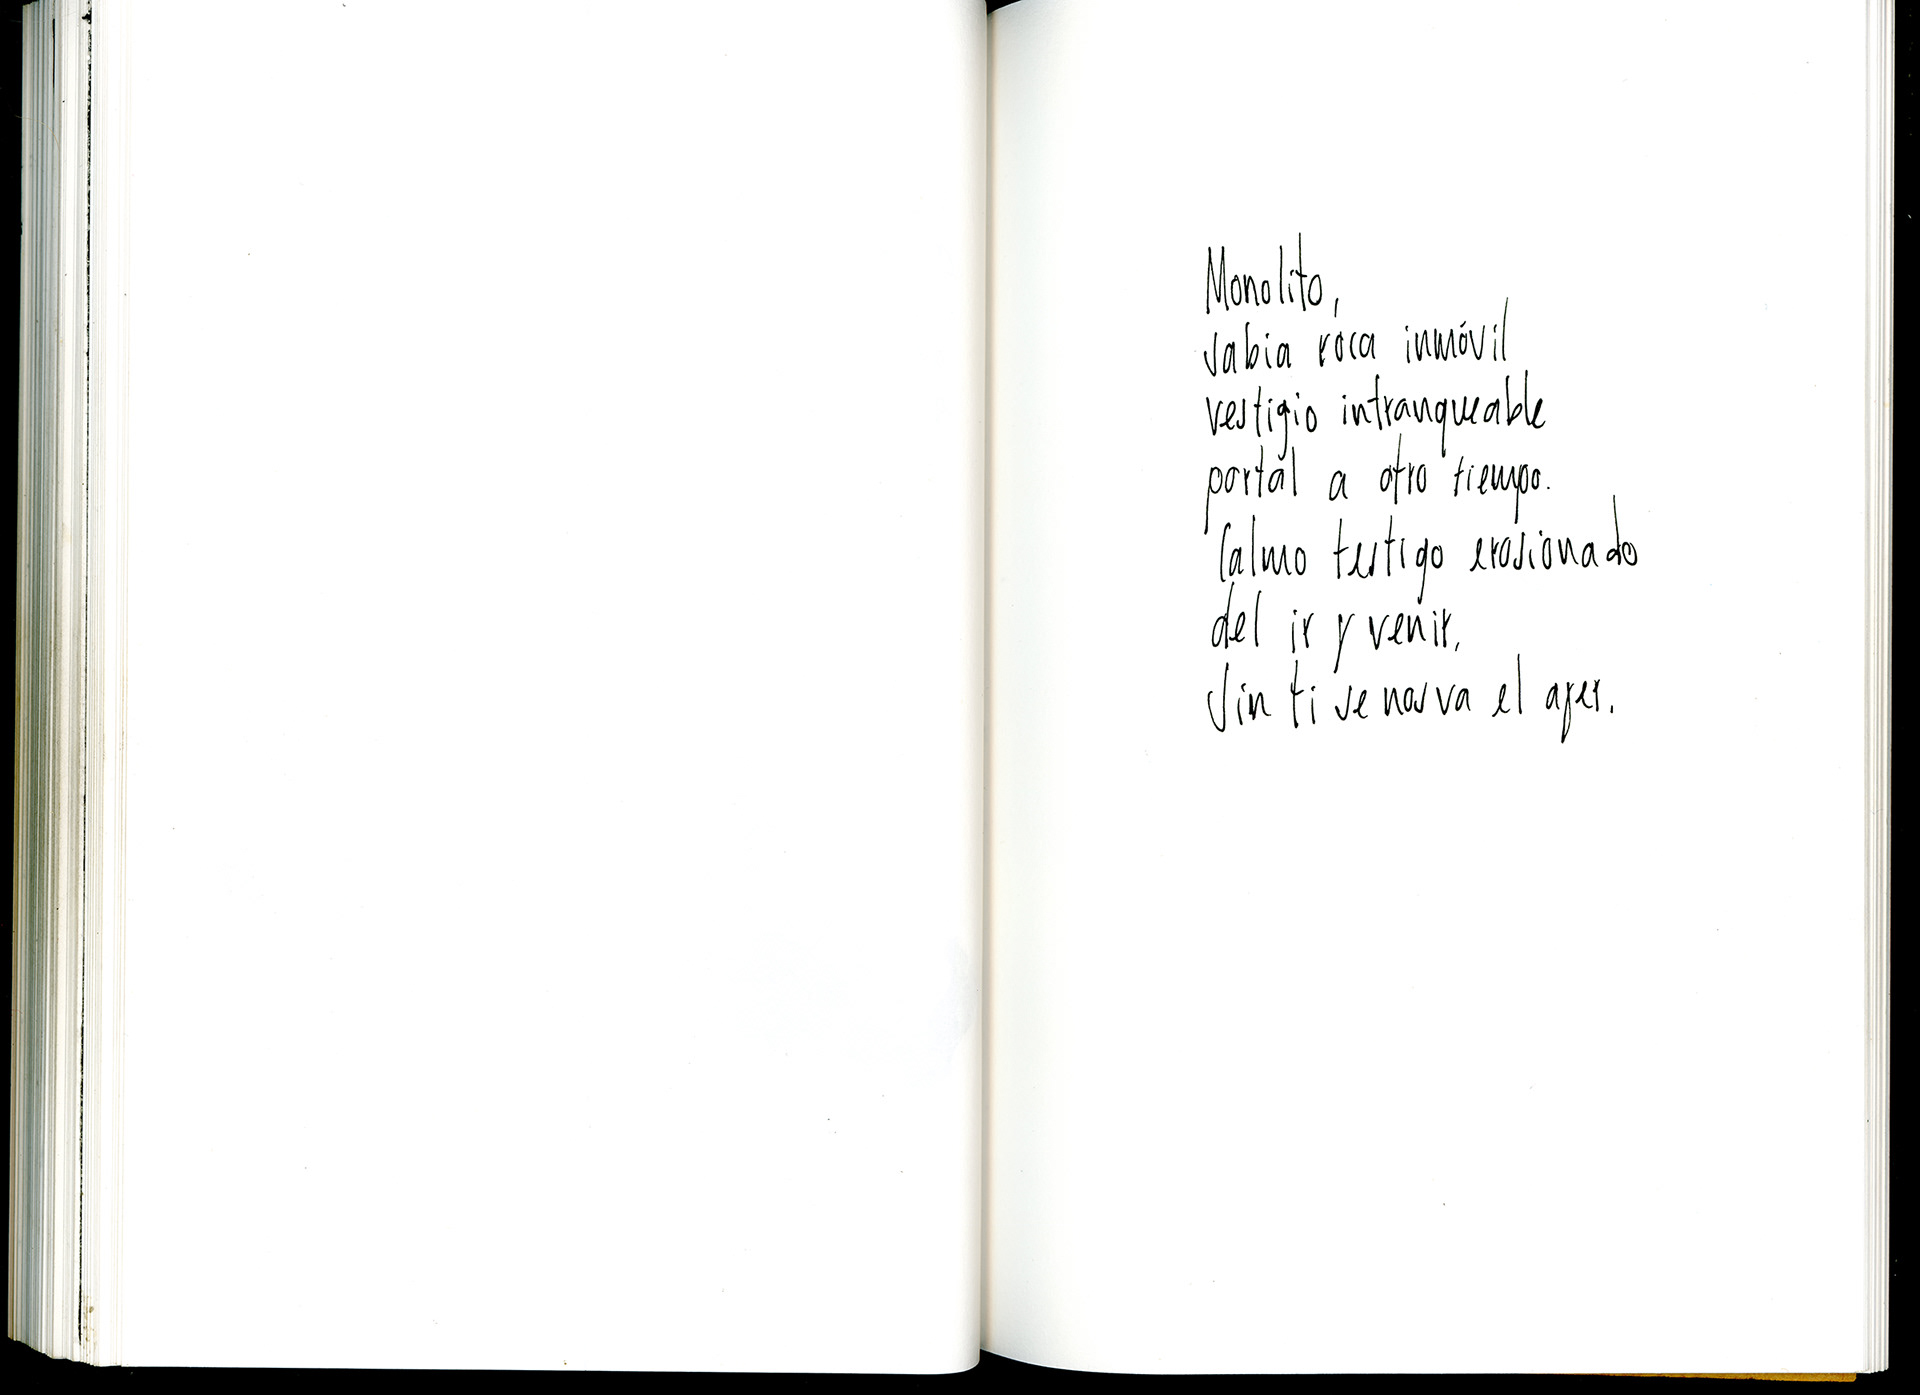 Monolito,
sabia roca inmóvil
vestigio intranqueable
portal a otro tiempo.
Calmo testigo erosionado
del ir y venir,
Sin ti se nos va el ayer.